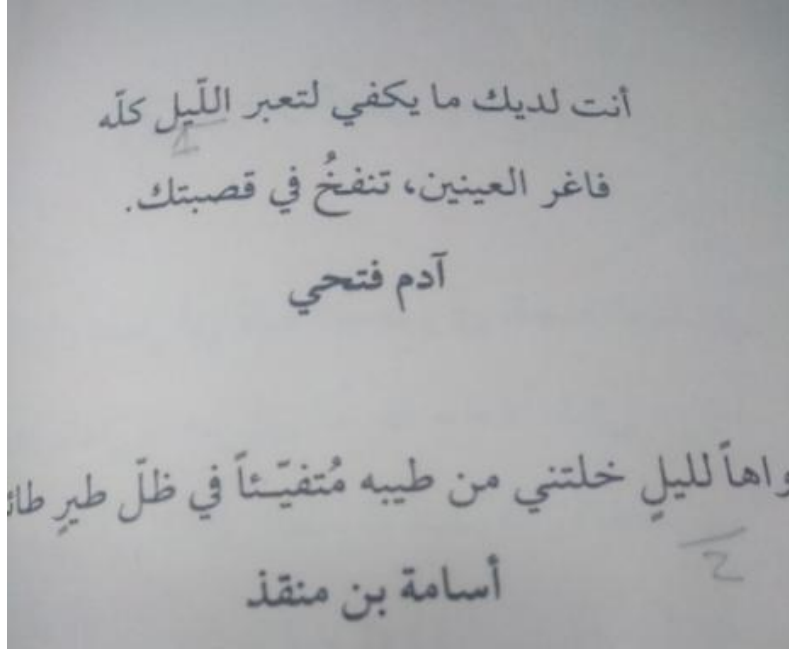 أنت لديك ما يكفي لتعبر اللّيل كلّه
1
فاغر العينين، تنفخُ في قصبتك.
آدم فتحي
واهاً لليلٍ خلتني من طيبه مُتفيّئاً في ظلّ طيرٍ
2
أسامة بن منقذ